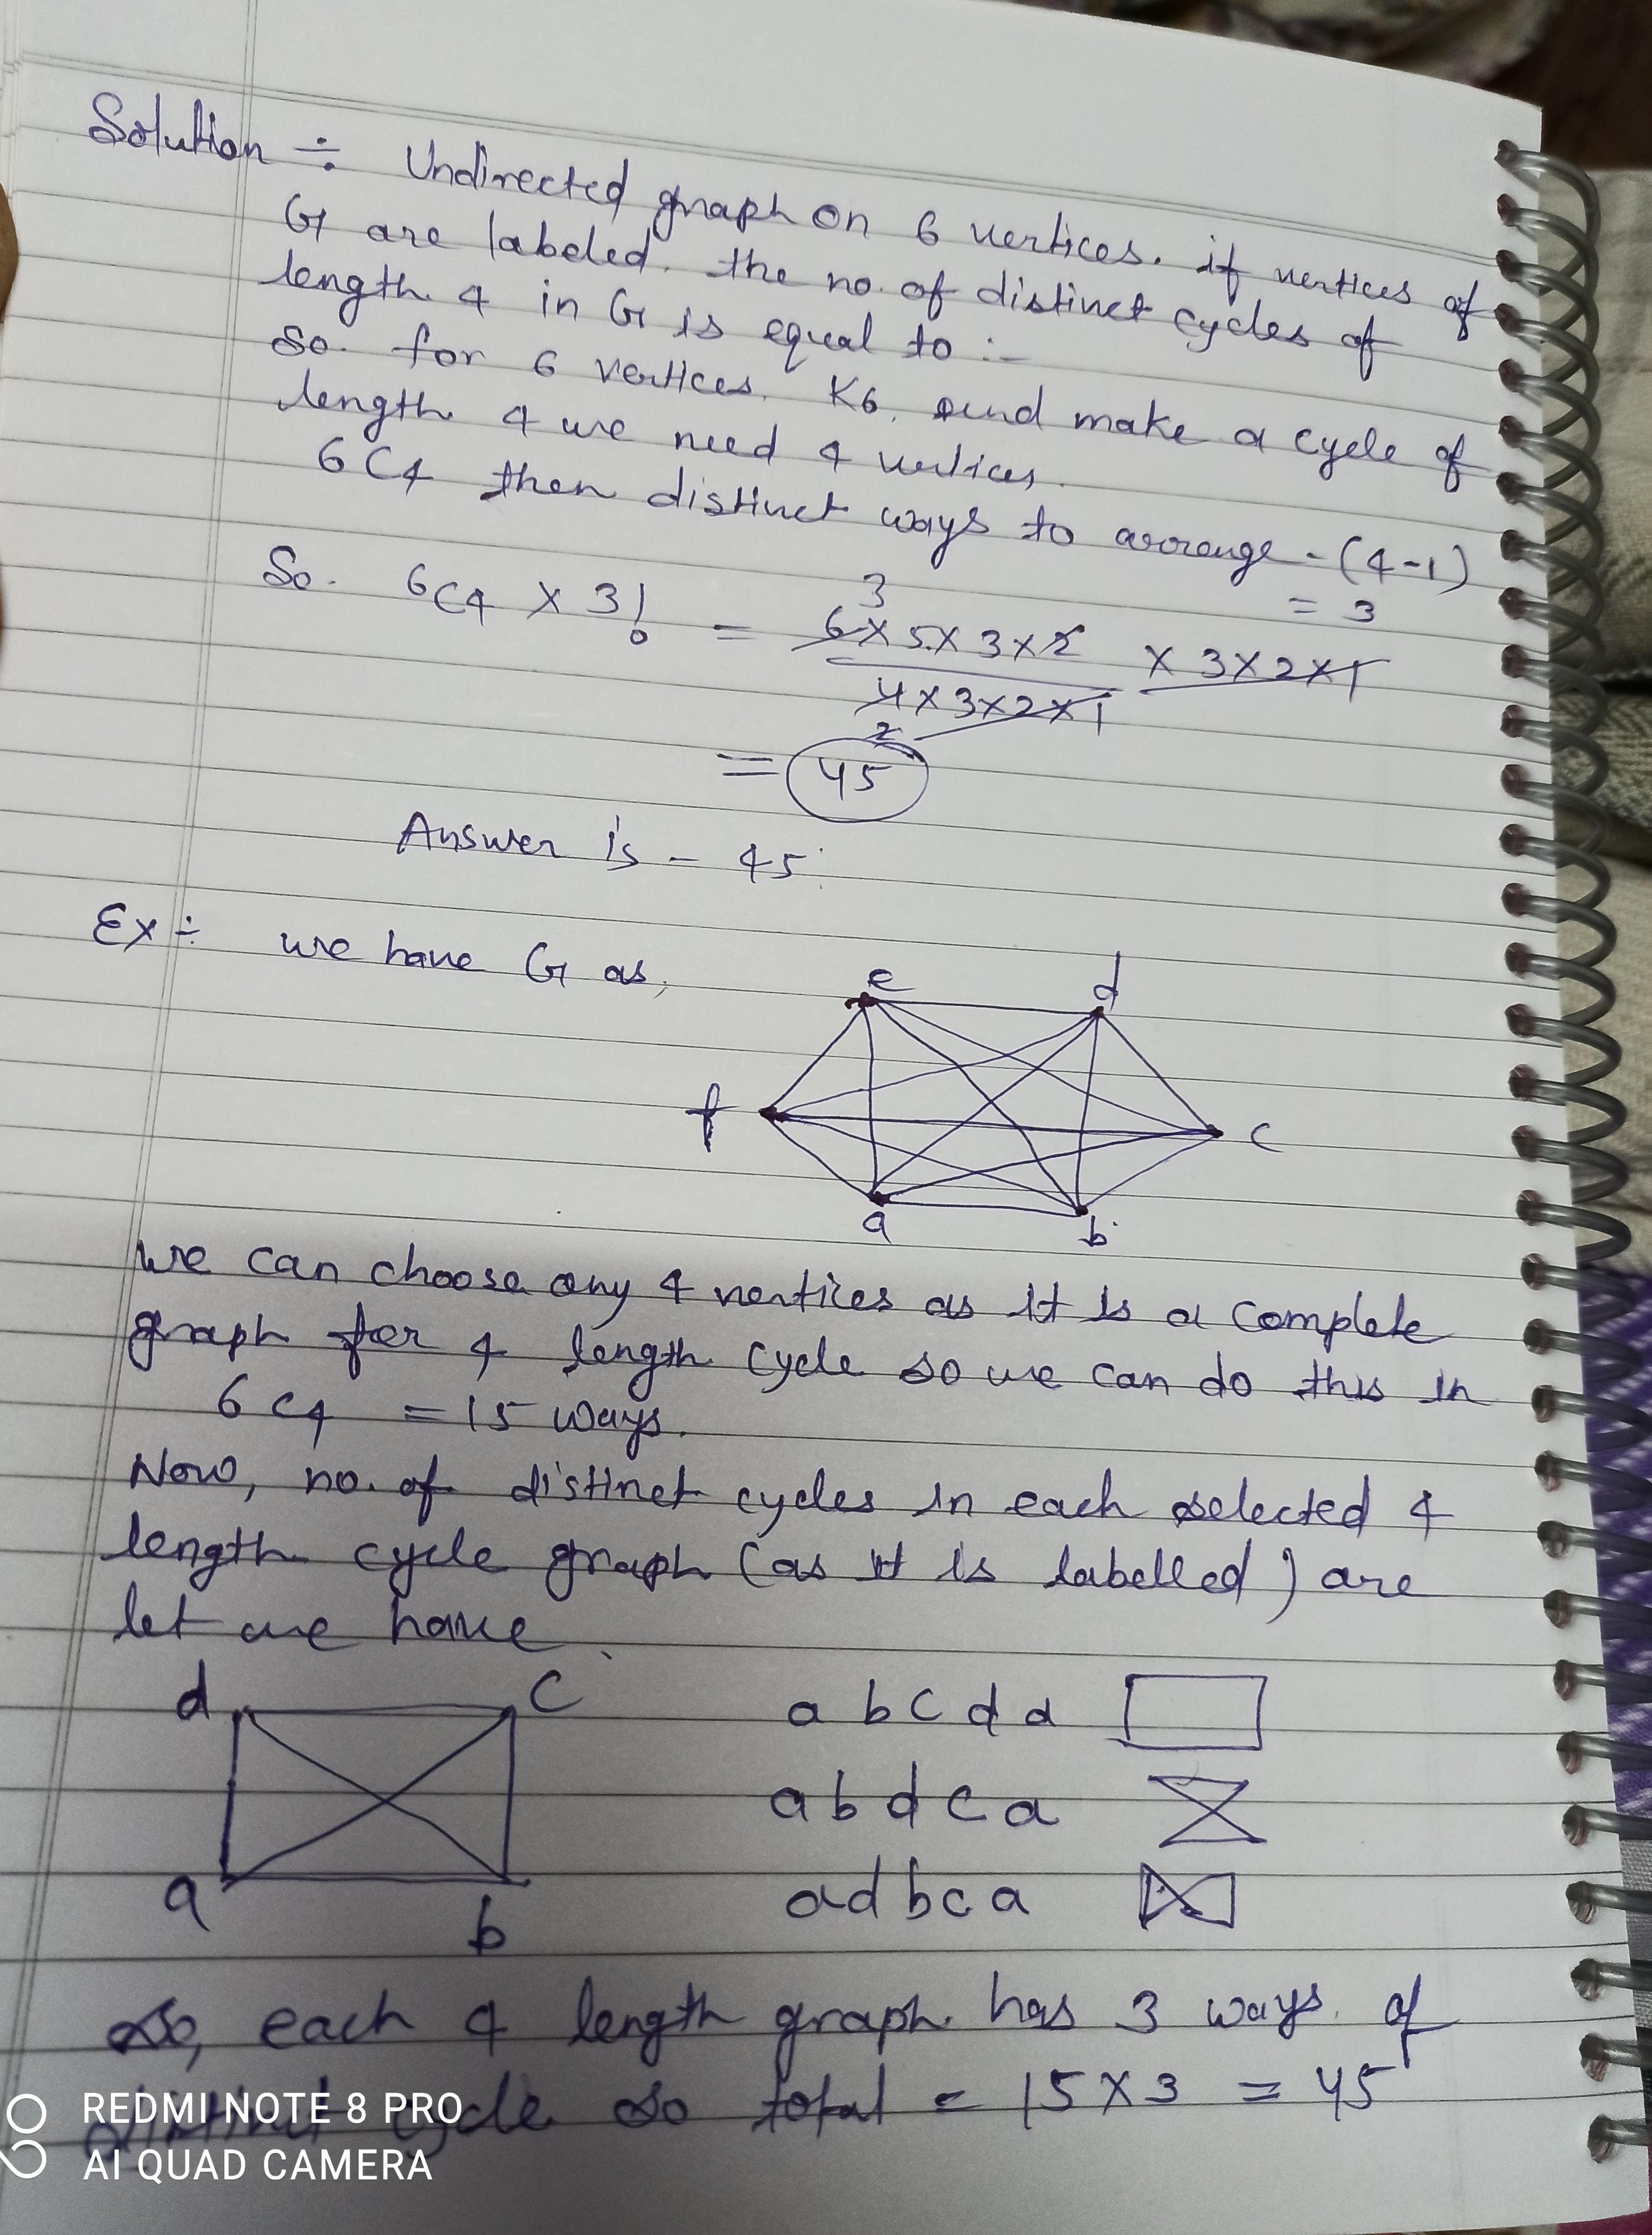 Solution ÷ Undirected graph on 6 vertices. if vertices of
G are labeled. the no. of distinct cycles of
length 4 in G is equal to :-
So. for 6 vertices. K6, and make a cycle of
length 4 we need 4 vertices.
6C4 then distinct ways to arrange - (4-1)
= 3
So. 6C4 × 3! = 6×5×3×2 × 3×2×1
3
4×3×2×1
2
= 45
Answer is - 45.
Ex ÷ we have G as,
e d
f c
a b
we can choose any 4 vertices as it is a complete
graph for 4 length cycle so we can do this in
6C4 = 15 ways.
Now, no. of distinct cycles in each selected 4
length cycle graph (as it is labelled) are
let we have
d c a b c d a
a b d c a
a b a d b c a
So, each 4 length graph has 3 ways. of
distinct cycle so total = 15 × 3 = 45
REDMI NOTE 8 PRO
AI QUAD CAMERA